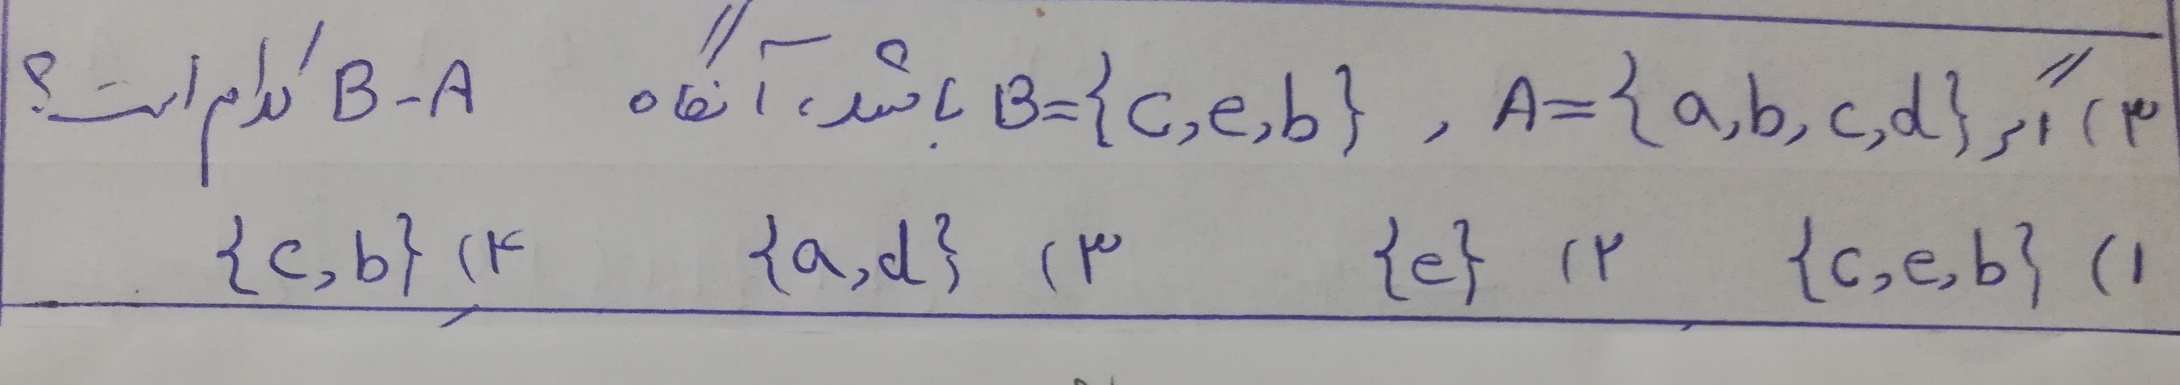 ۳) اگر A={a,b,c,d} , B={c,e,b} باشد، آنگاه B-A کدام است؟
۱) {c,e,b} ۲) {e} ۳) {a,d} ۴) {c,b}